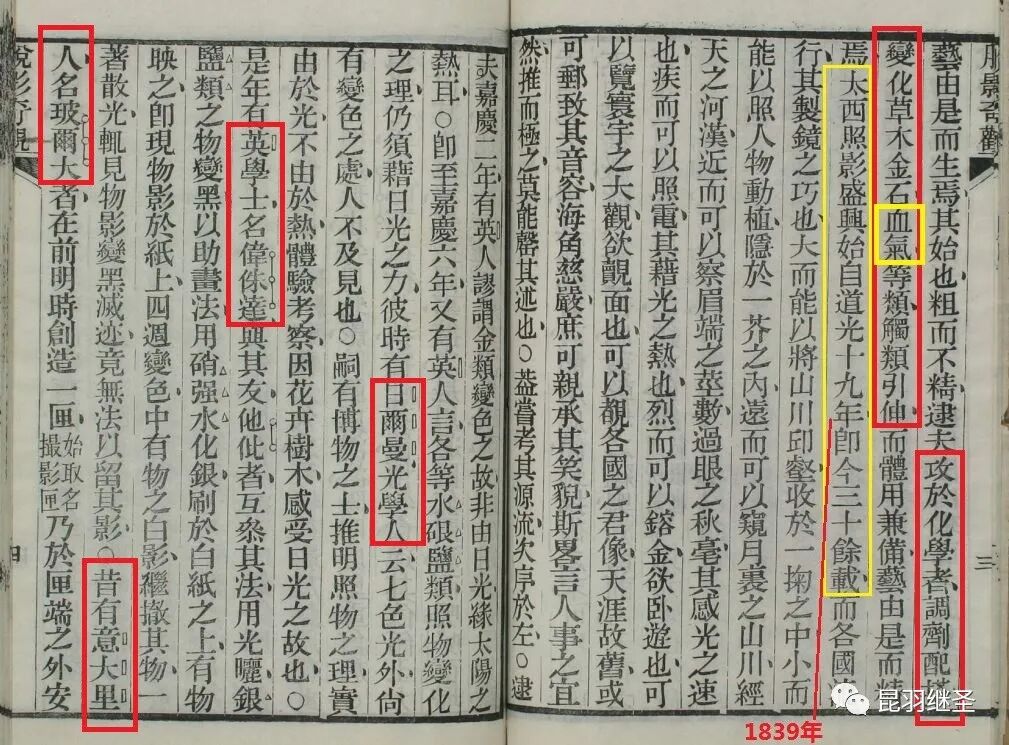 脫影奇觀
藝由是而生焉其始也粗而不精逮夫攻於化學者調劑配
變化草木金石血氣等類觸類引伸而體用兼備藝由是而精
焉太西照影盛興始自道光十九年卽今三十餘載而各國
行其製鏡之巧也大而能以將山川邱壑收於一掬之中小而
能以照人物動植隱於一芥之內遠而可以窺月裏之山川經
天之河漢近而可以察眉端之莖數過眼之秋毫其感光之速
也疾而可以照電其藉光之熱也烈而可以鎔金欲卧遊也可
以覽寰宇之大觀欲覿面也可以覩各國之君像天涯故舊或
可郵致其音容海角慈嚴庶可親承其笑貌斯畧言人事之宜
然推而極之莫能罄其述也○葢嘗考其源流次序於左○逮
三
夫嘉慶二年有英人謬謂金類變色之故非由日光緣太陽之
熱耳○卽至嘉慶六年又有英人言各等水碾鹽類照物變化
之理仍須藉日光之力彼時有日爾曼光學人云七色光外尙
有變色之處人不及見也○嗣有博物之士推明照物之理實
由於光不由於熱體驗考察因花卉樹木感受日光之故也○
是年有英學士名偉俫達與其友他仳者互叅其法用光曬銀
鹽類之物變黑以助畫法用硝强水化銀刷於白紙之上有物
映之卽現物影於紙上四週變色中有物之白影繼撤其物一
著散光輒見物影變黑滅迹竟無法以留其影○昔有意大里
人名玻爾大者在前明時創造一匣始取名撮影匣乃於匣端之外安
脫影奇觀
四
1839年
昆羽继圣